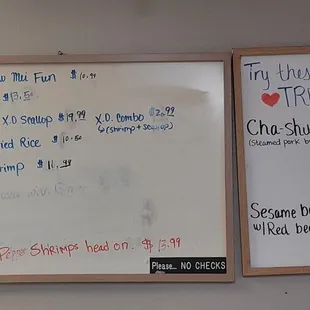 Mei Fun $10.99
$13.50
X.O Scallop $19.99
X.O. Combo
(shrimp + scallop)
Rice $10.50
$11.99
Shrimps head on. $13.99
Please... NO CHECKS
Try
TR
Cha-shu
(steamed pork
Sesame
w/Red